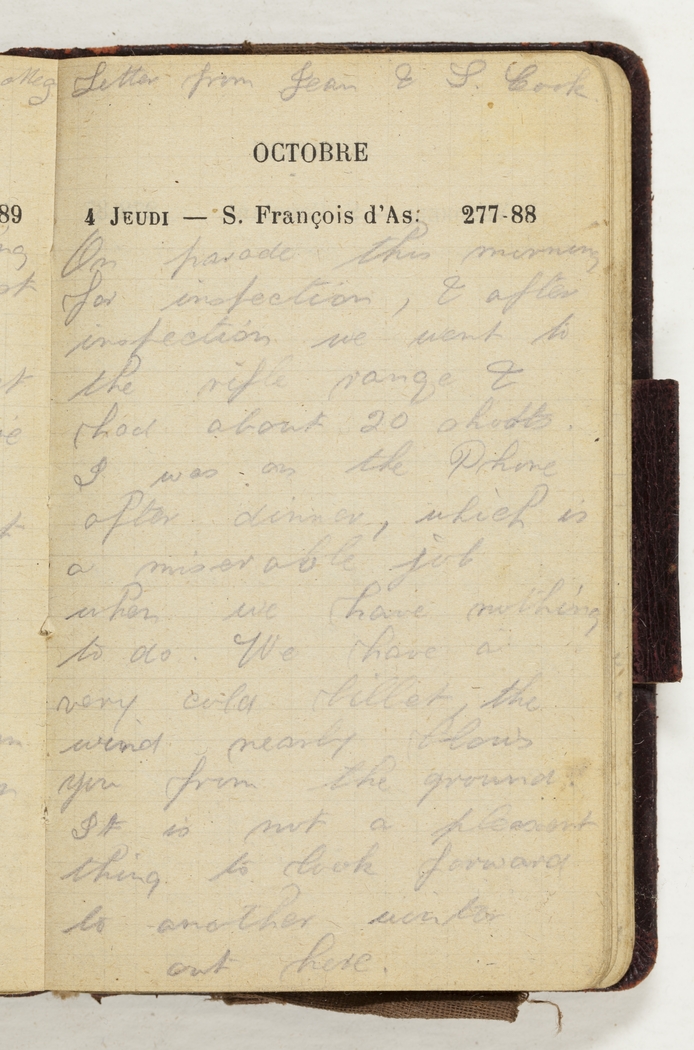 Letter from Jean & S. Cook
OCTOBRE
89
4 JEUDI — S. François d'As. 277-88
On parade this morning
for inspection, & after
inspection we went to
the rifle range &
had about 20 shotts.
I was on the Phone
after dinner, which is
a miserable job
when we have nothing
to do. We have a
very cold billet, the
wind nearly blows
you from the ground.
It is not a pleasant
thing to look forward
to another winter
out here.